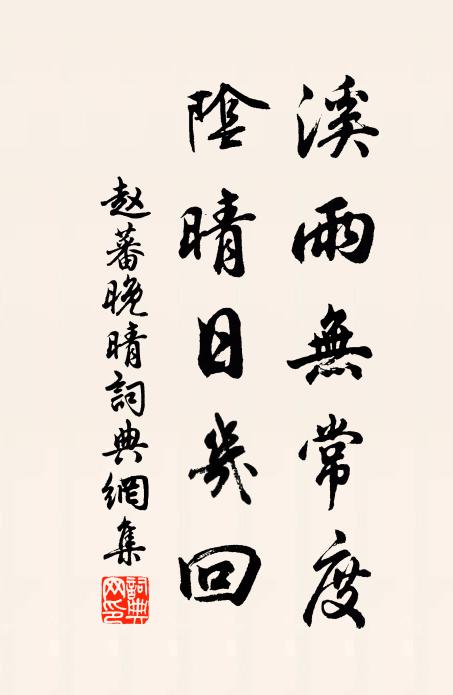 溪雨無常度
陰晴日幾回
赵蕃晚晴詞典網集
詞典網印